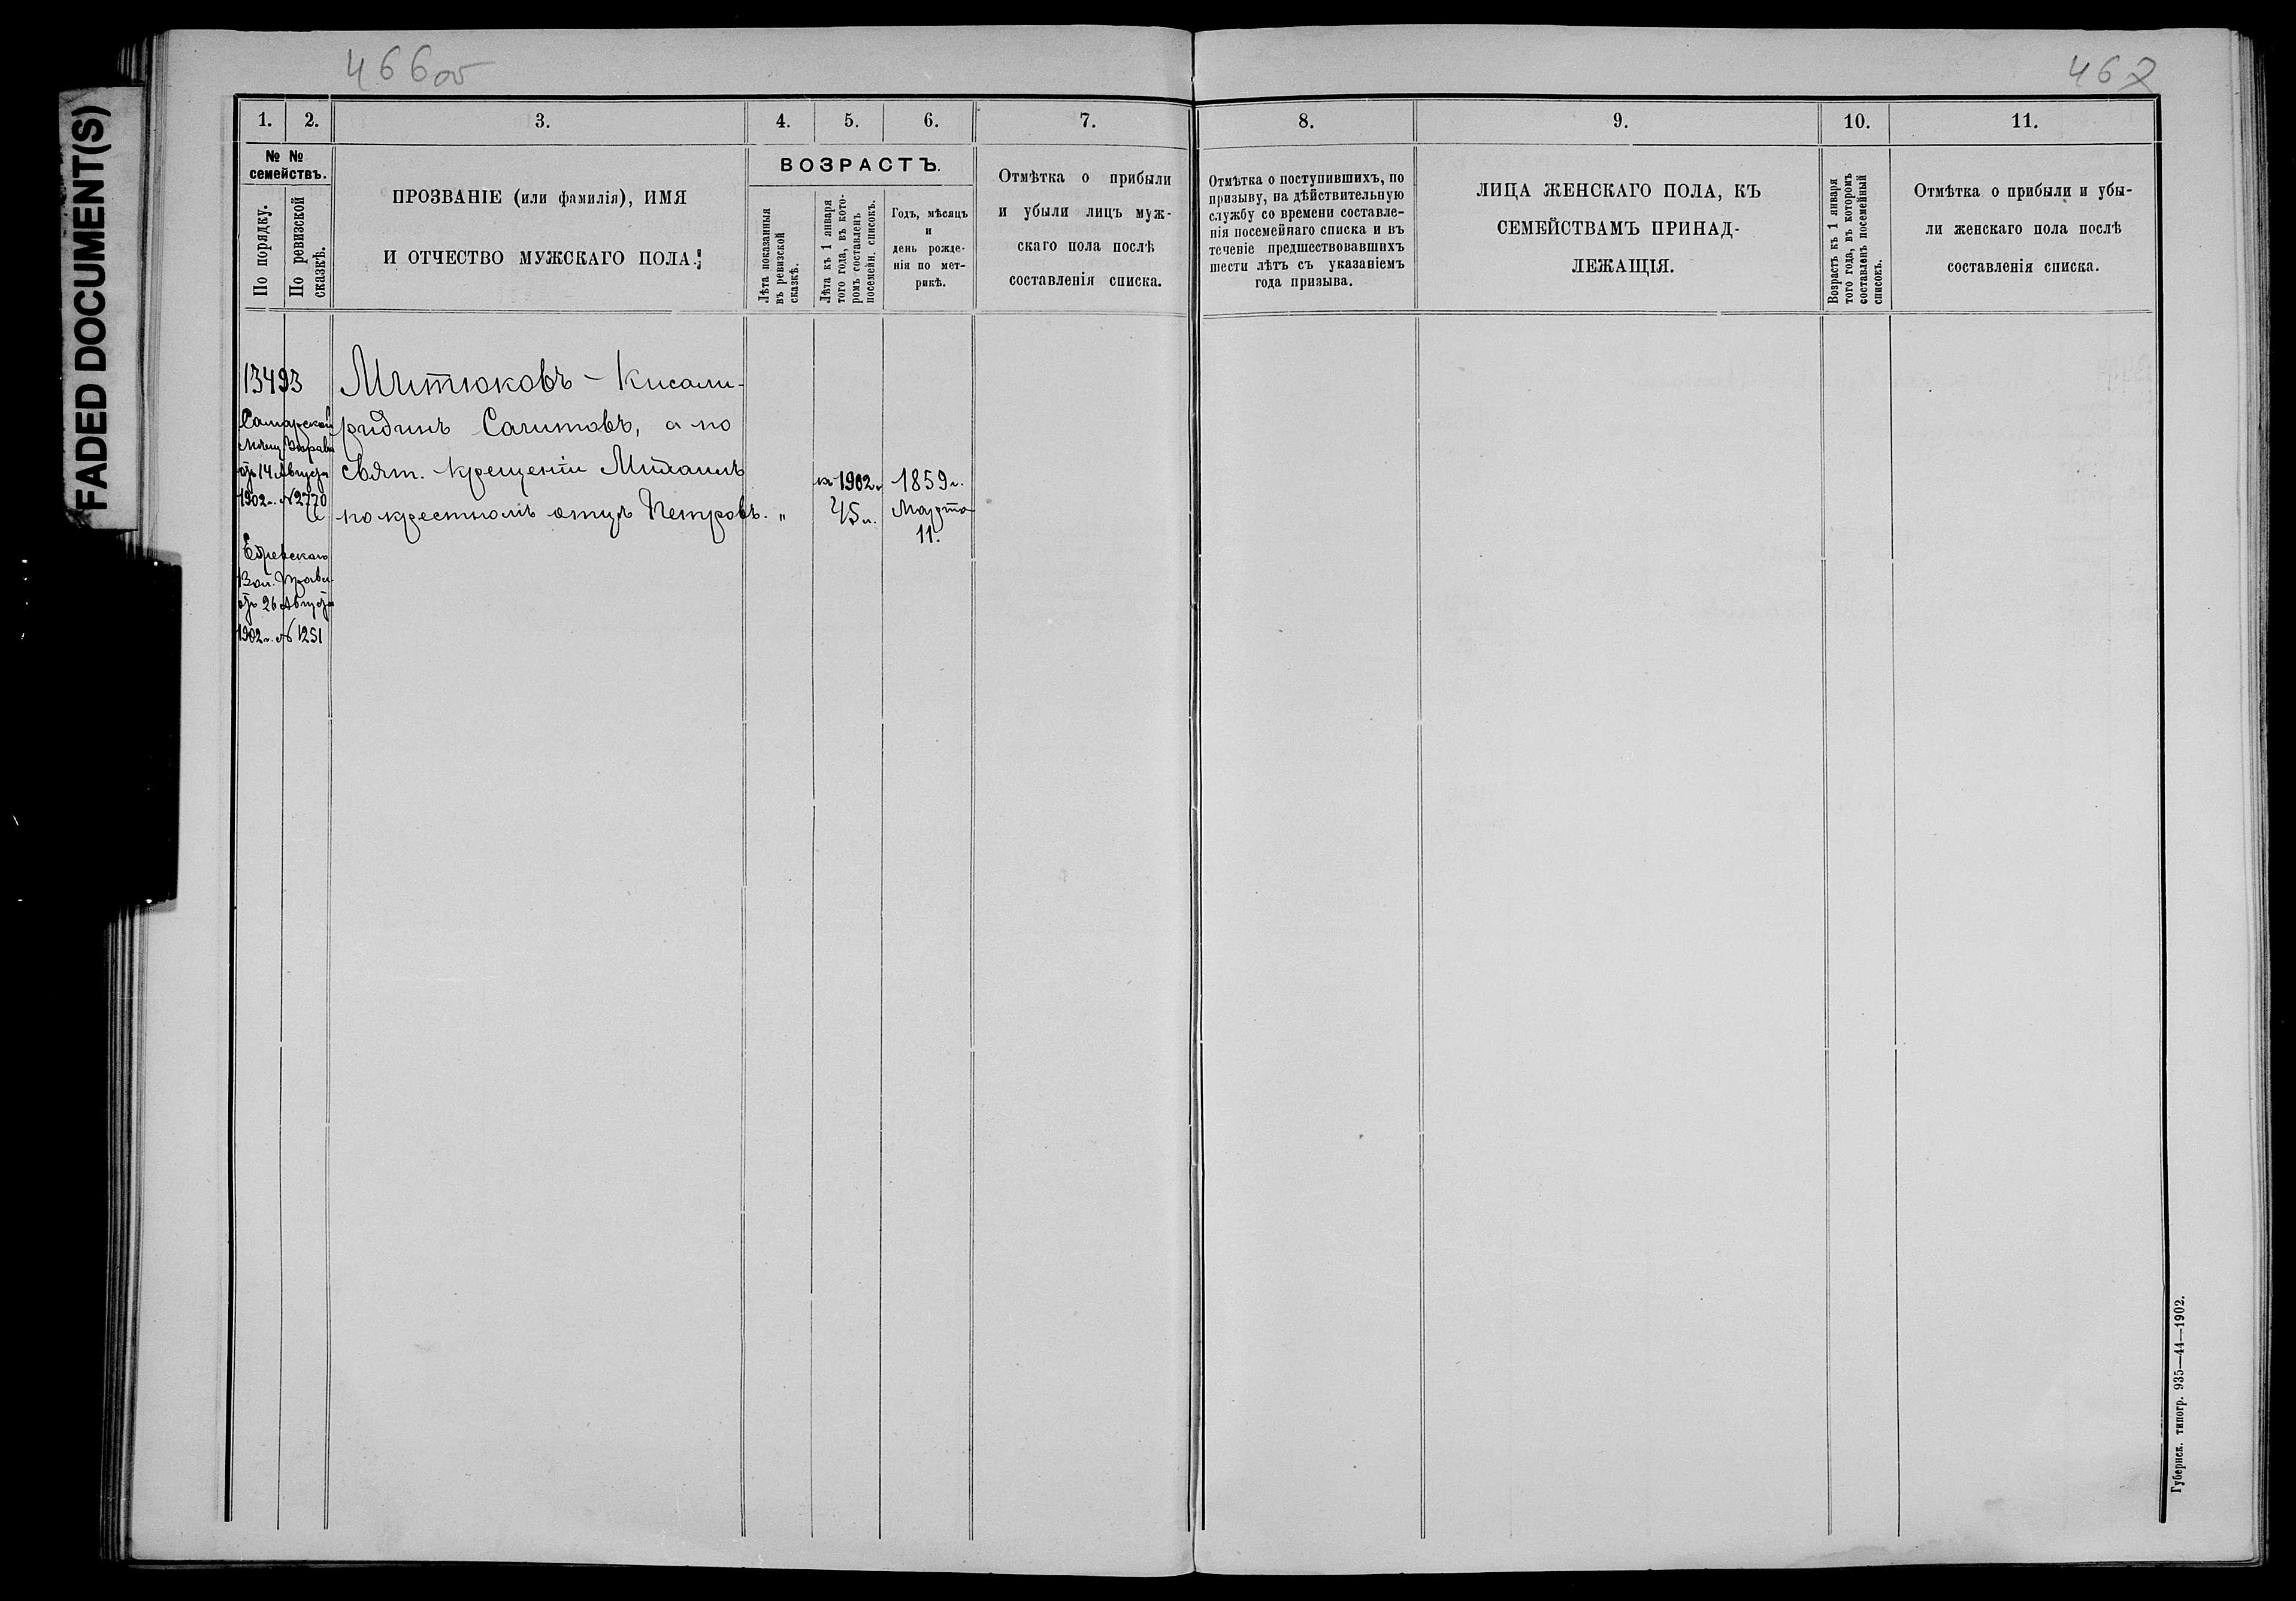 FADED DOCUMENT(S)
466об
467
1. 2. 3. 4. 5. 6. 7. 8. 9. 10. 11.
№ №
семействъ.
По порядку.
По ревизской
сказкѣ.
ПРОЗВАНІЕ (или фамилія), ИМЯ
И ОТЧЕСТВО МУЖСКАГО ПОЛА.
ВОЗРАСТЪ.
Лѣта показанныя
въ ревизской
сказкѣ.
Лѣта къ 1 января
того года, въ кото-
ромъ составленъ
посемейн. списокъ.
Годъ, мѣсяцъ
и
день рожде-
нія по мет-
рикѣ.
Отмѣтка о прибыли
и убыли лицъ муж-
скаго пола послѣ
составленія списка.
Отмѣтка о поступившихъ, по
призыву, на дѣйствительную
службу со времени составле-
нія посемейнаго списка и въ
теченіе предшествовавшихъ
шести лѣтъ съ указаніемъ
года призыва.
ЛИЦА ЖЕНСКАГО ПОЛА, КЪ
СЕМЕЙСТВАМЪ ПРИНАД-
ЛЕЖАЩІЯ.
Возрастъ къ 1 января
того года, въ которомъ
составленъ посемейный
списокъ.
Отмѣтка о прибыли и убы-
ли женскаго пола послѣ
составленія списка.
13493
Самарской
Мѣщ. Управы
отъ 14 Августа
1902 г. № 2770
Вол. Правл.
отъ 26 Августа
1902 г. № 1251
Митюковъ - Кисами-
ридинъ Салитовъ, а по
свят. крещеніи Михаилъ
по крестномъ отцѣ Петровъ. "
къ 1902 г.
45 л.
1859 г.
Марта
11.
Губернск. типогр. 935—44—1902.